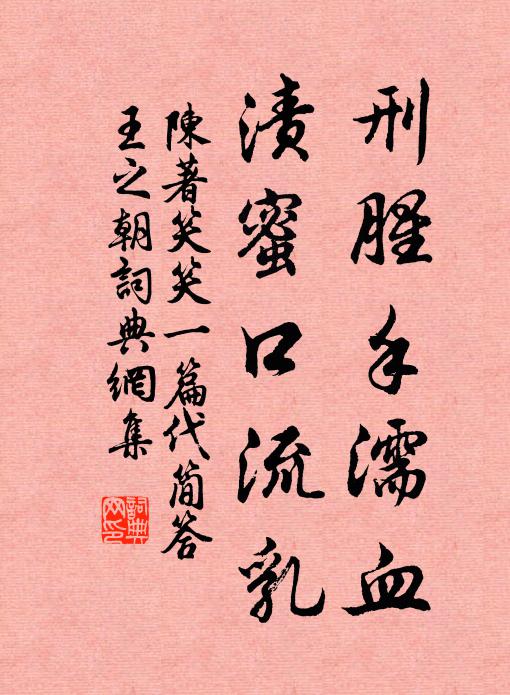 刑腥手濡血
漬蜜口流乳
陳著笑笑一篇代简答
王之朝詞典網集
詞典网印